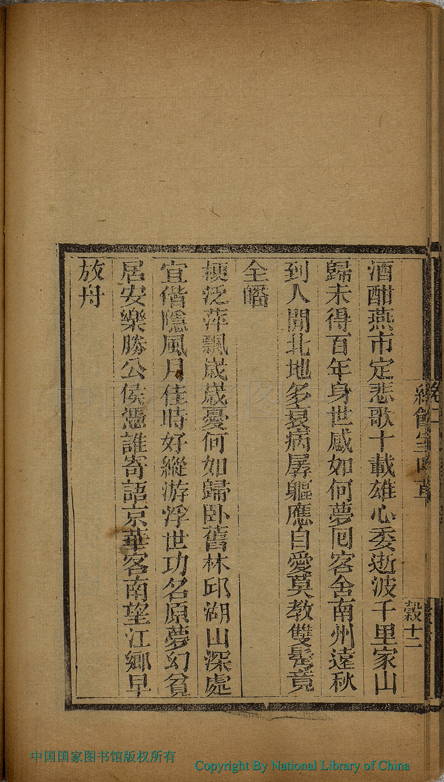 酒酣燕市定悲歌十載雄心委逝波千里家山
歸未得百年身世感如何夢回客舍南州遠秋
到人間北地多衰病孱軀應自愛莫教雙鬢竟
全皤
梗泛萍飄歲歲憂何如歸卧舊林邱湖山深處
宜偕隱風月佳時好縱游浮世功名原夢幻貧
居安樂勝公侯憑誰寄語京華客南望江鄉早
放舟
穀十二
中国国家图书馆版权所有
Copyright By National Library of China